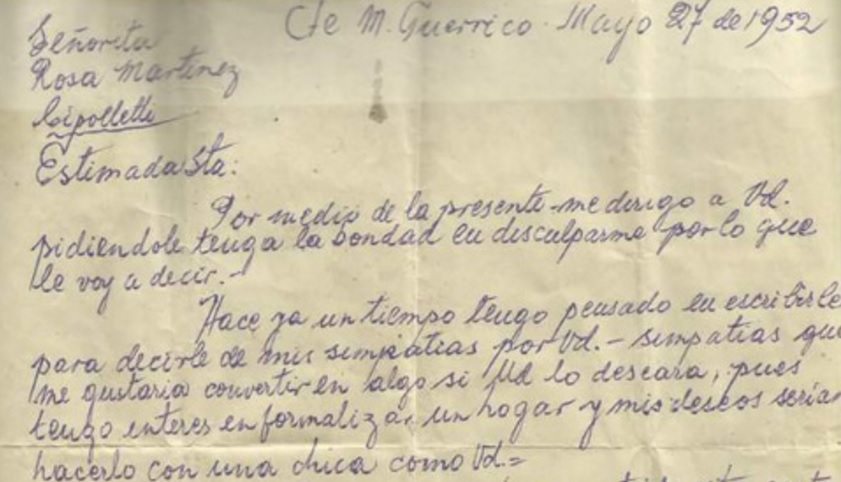 Cte M. Guerrico. Mayo 27 de 1952
Señorita
Rosa Martinez
Cipolletti
Estimada Sta:
Por medio de la presente me dirigo a Vd.
pidiendole tenga la bondad en disculparme por lo que
le voy a decir.-
Hace ya un tiempo tengo pensado en escribirle
para decirle de mis simpatias por Vd.- simpatias que
me gustaria convertir en algo si Ud lo deseara, pues
tengo interes en formalizar un hogar y mis deseos serian
hacerlo con una chica como Vd.=